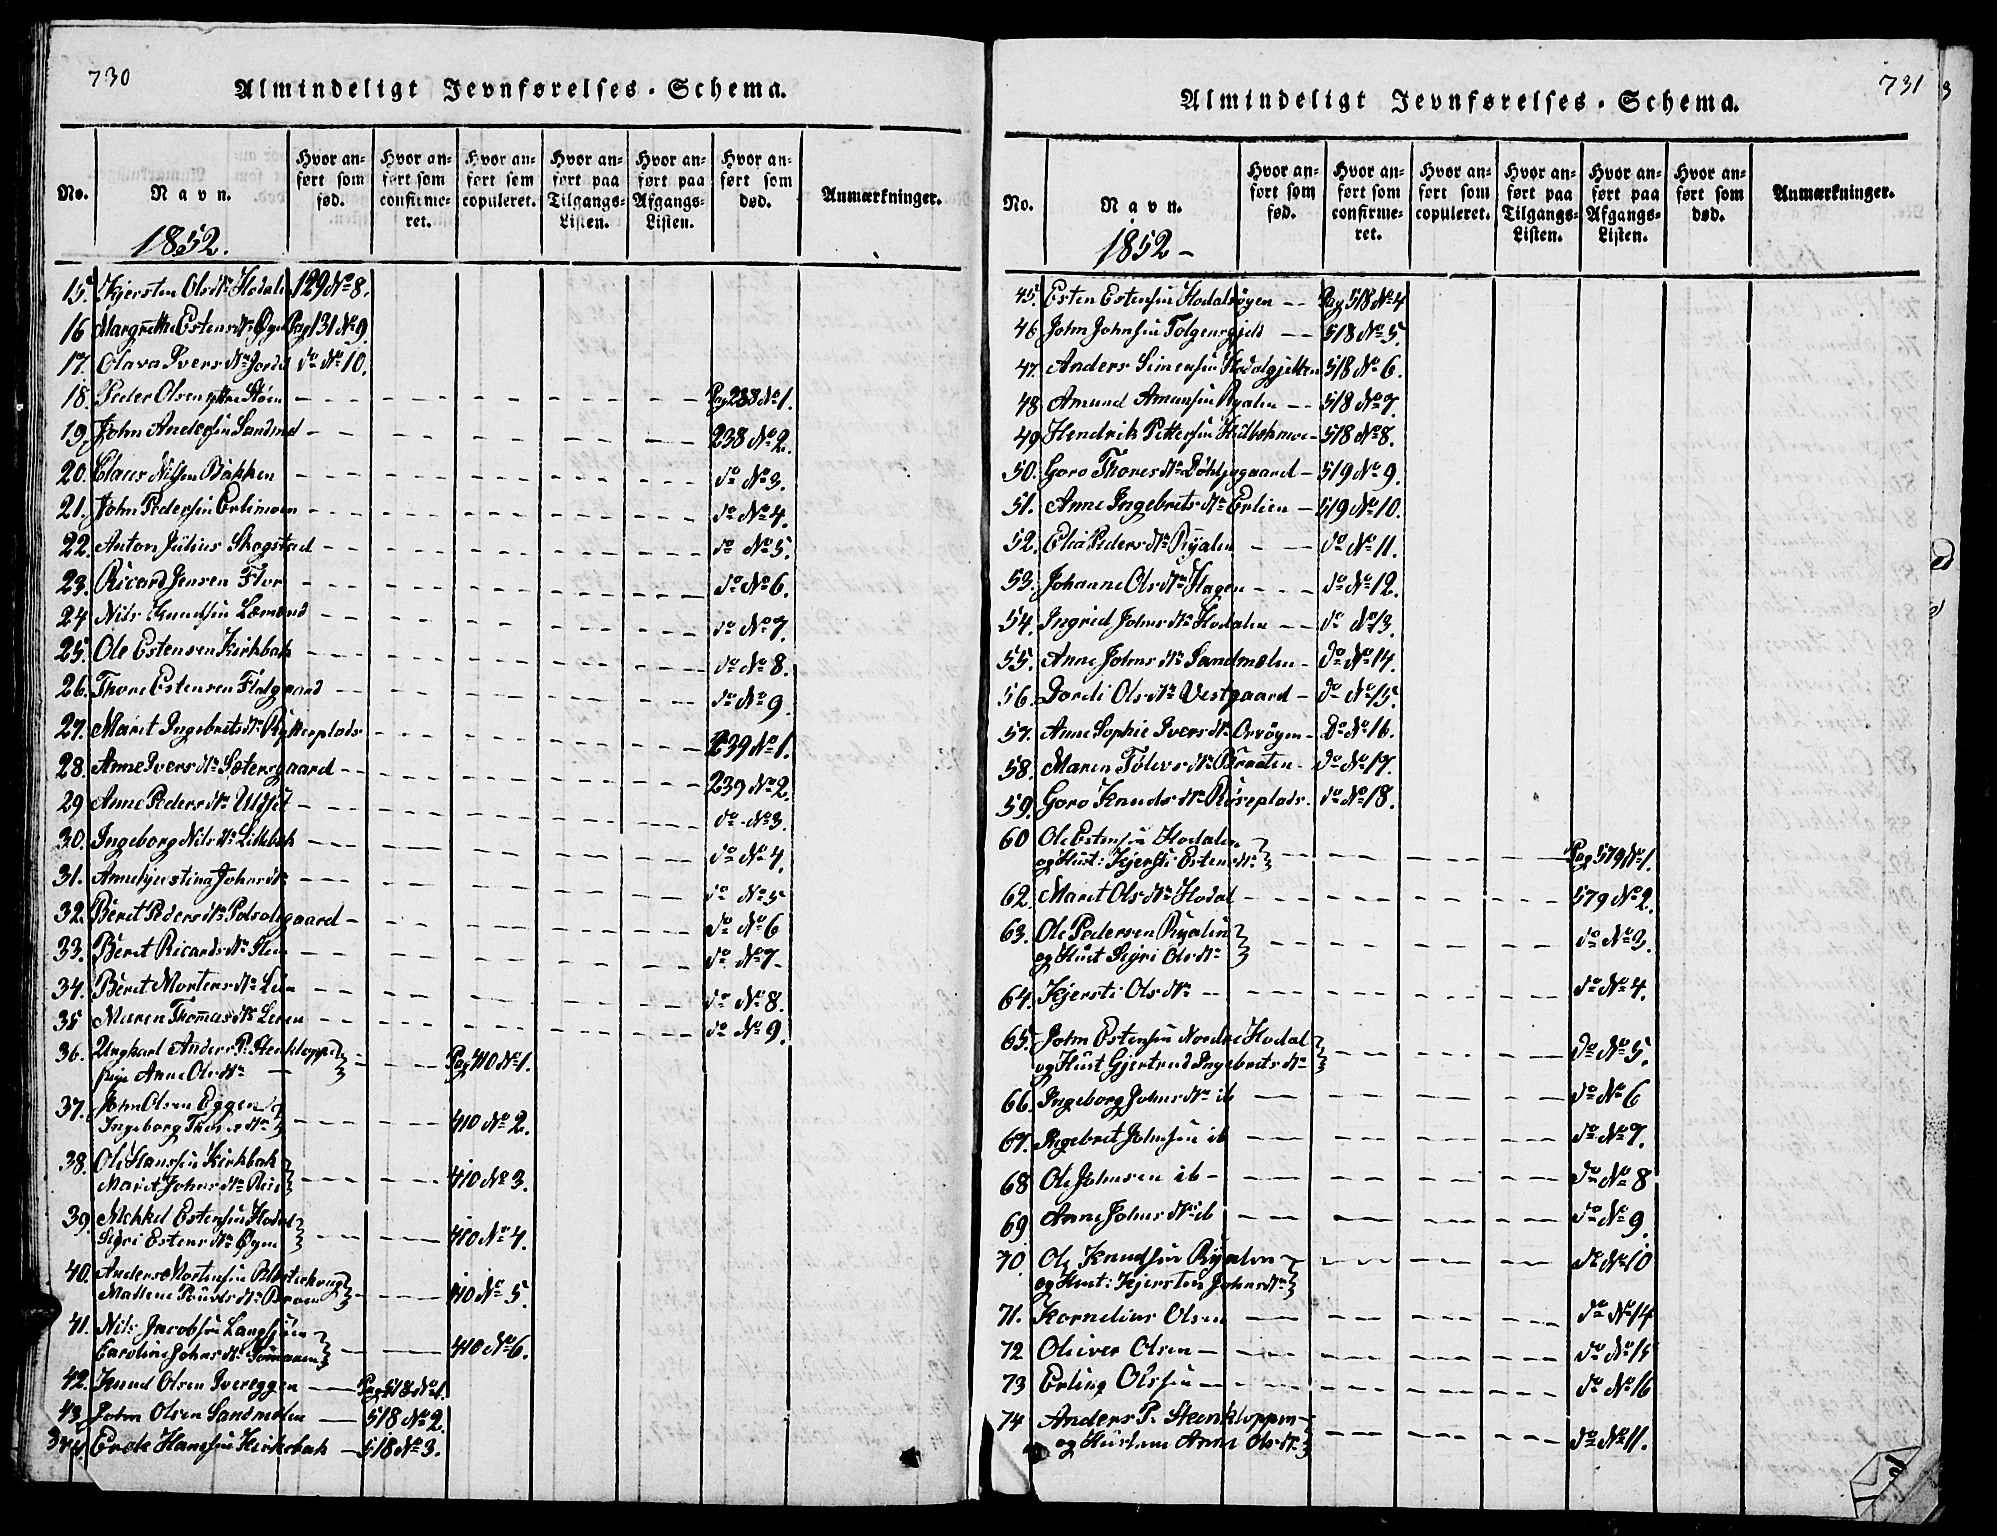 730
Almindeligt Jevnførelses-Schema.
No.
Navn.
Hvor anført som fød.
Hvor anført som confirmeret.
Hvor anført som copuleret.
Hvor anført paa Tilgangs-Listen.
Hvor anført paa Afgangs-Listen.
Hvor anført som død.
Anmærkninger.
1852.
15. Kjersten Olsdtr Hodalen 129 No 8.
16 Margrethe Estensdtr Øyen Pag 131 No 9.
17. Olava Iversdtr Jordet do No 10.
18. Peder Olsen Støen Pag 238 No 1.
19. John Andersen Sandmel 238 No 2.
20. Claus Nilsen Bakken do No 3.
21. John Pedersen Erlimoen do No 4.
22. Anton Julius Skogstad do No 5.
23. Ricard Jensen Flor do No 6.
24 Nils Knudsen do No 7.
25. Ole Estensen Kirkbak do No 8.
26. Thore Estensen Flatgaard do No 9.
27. Marit Ingebretsdtr 239 No 1.
28. Anne Iversdtr Sætersgaard 239 No 2.
29 Anne Pedersdtr Udset do No 3.
30. Ingeborg Nilsdtr Lillebak do No 4.
31. Anne Kjerstina Johnsdtr do No 5
32. Berit Pedersdtr do No 6
33. Berit Ricardsdtr do No 7
34. Berit Mortensdtr Lien do No 8.
35 Maren Thomasdtr Leren do No 9.
36. Ungkarl Anders P. Stenkloppe
Pige Anne Olsdtr Pag 410 No 1.
37. John Olsen Eggen
Ingeborg Thoresdtr 410 No 2.
38. Ole Hanssen Kirkbak
Marit Johnsdtr 410 No 3.
39. Mikkel Estensen Hodal
Sigri Estensdtr Øyen 410 No 4.
40. Anders Mortensen
Mallene Poulsdtr 410 No 5.
41. Nils Jacobsen Langsjøen
Caroline Johnsdtr 410 No 6.
42. Knud Olsen Ivereggen Pag 518 No 1.
43 John Olsen Sandmælen 518 No 2.
44. Erek Hanssen Kirkebak 518 No 3.
731
Almindeligt Jevnførelses-Schema.
No.
Navn.
Hvor anført som fød.
Hvor anført som confirmeret.
Hvor anført som copuleret.
Hvor anført paa Tilgangs-Listen.
Hvor anført paa Afgangs-Listen.
Hvor anført som død.
Anmærkninger.
1852
45. Esten Estensen Hodalsøyen Pag 518 No 4
46. John Johnsen Tolgensgjelt 518 No 5.
47. Anders Simensen Hodalgjelten 518 No 6.
48 Amund Amundsen Ryalen 518 No 7.
49 Hendrik Pettersen 518 No 8.
50. Goro Thoresdtr 519 No 9.
51. Anne Ingebretsdtr Erlien 519 No 10.
52. Eli Pedersdtr Ryalen do No 11.
53. Johanne Olsdtr Hagen do No 12.
54. Ingrid Johnsdtr Hodalen do No 13.
55. Anne Johnsdtr Sandmælen do No 14.
56. Dordi Olsdtr Vestgaard do No 15.
57. Anne Sophie Iversdtr Orvøyen Do No 16.
58. Maren Tølevsdtr Braaten do No 17.
59. Goro Knudsdtr Røseplads do No 18.
60 Ole Estensen Hodalen
og Hust: Kjersti Estensdtr Pag 579 No 1.
62. Marit Olsdtr Hodal 579 No 2.
63. Ole Pedersen Ryalen
og Hust Sigri Olsdtr do No 3.
64. Kjersti Olsdtr do No 4.
65. John Estensen Nordre Hodal
og Hust Gjertrud Ingebretsdtr do No 5.
66. Ingeborg Johnsdtr ib do No 6
67. Ingebret Johnsen ib do No 7.
68 Ole Johnsen ib do No 8
69 Anne Johnsdtr ib do No 9.
70 Ole Knudsen Ryalen do No 10
og Hust: Kjersten Johnsdtr
71. Kornelius Olsen do No 14
72 Oliver Olsen do No 15
73 Erling Olsen do No 16
74 Anders P. Steenkloppen
og Hustrue Anne Olsdtr do No 11.